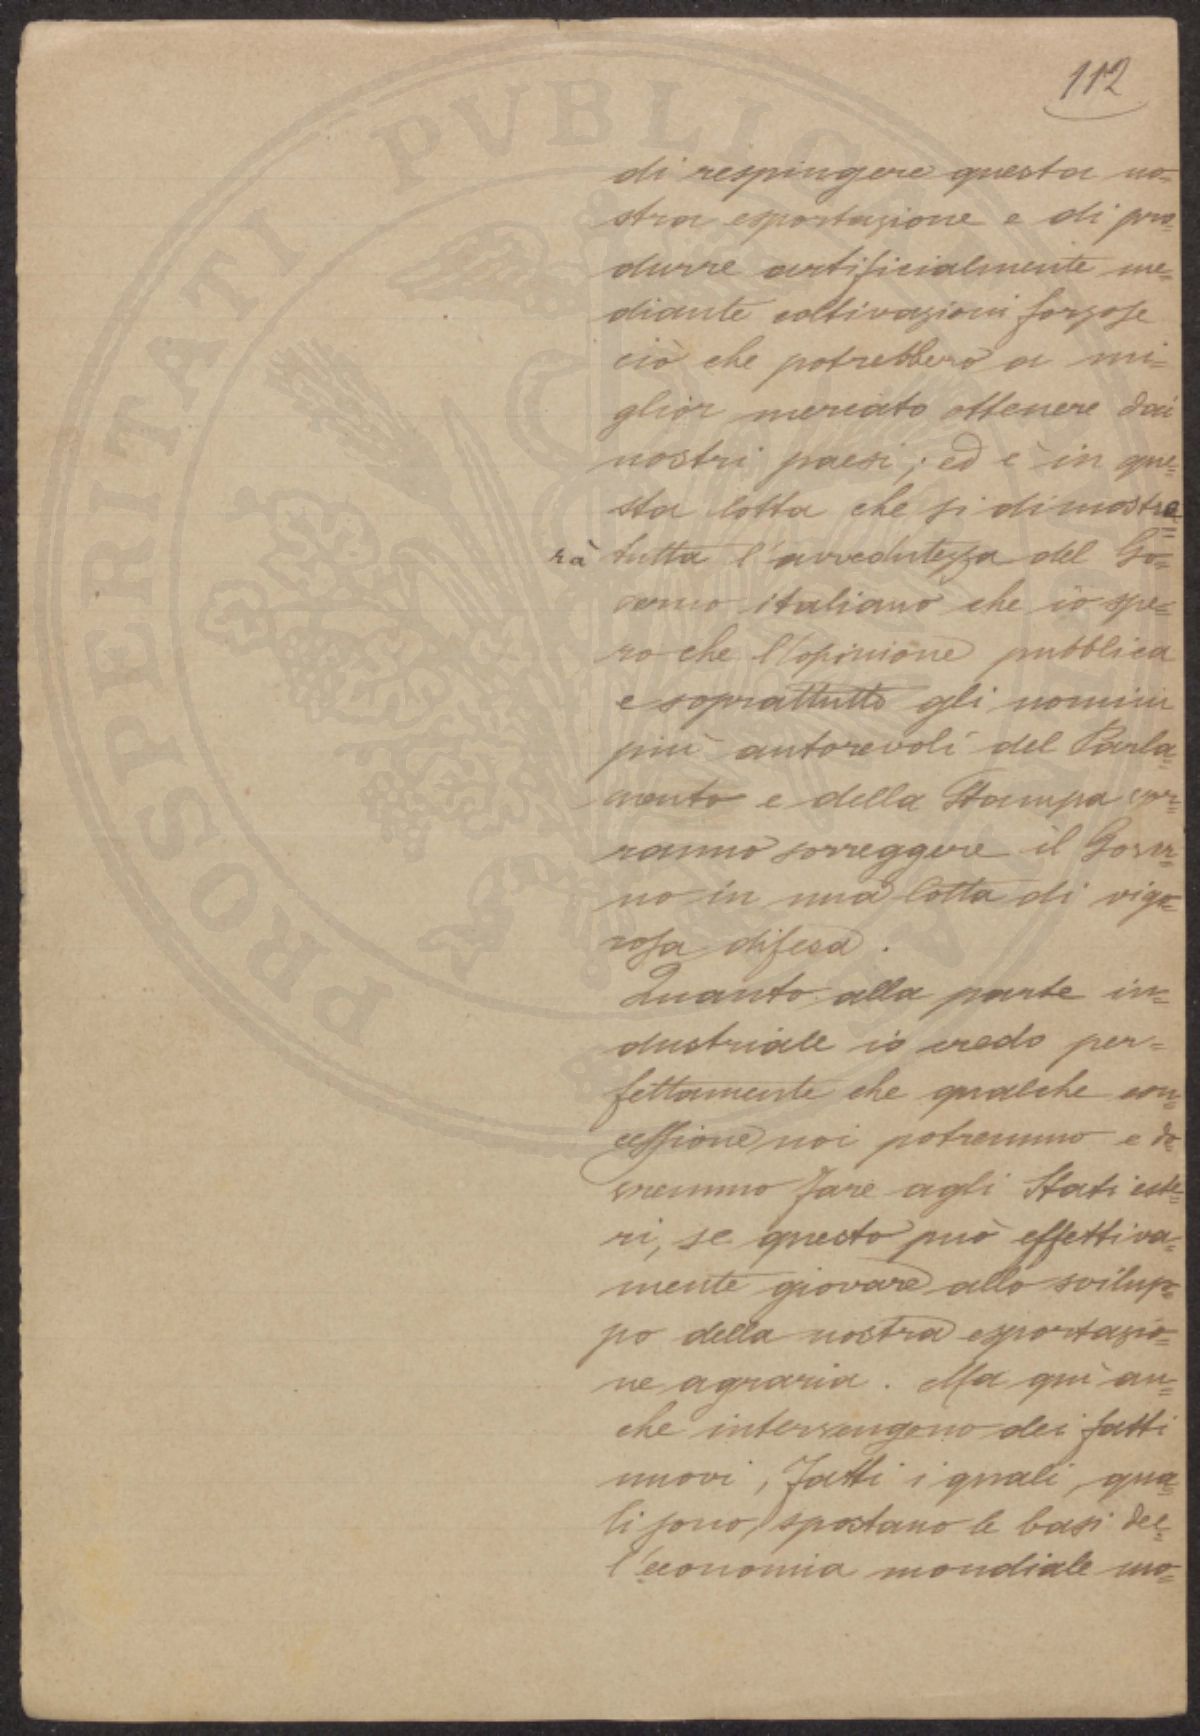 112
di respingere questa no=
stra esportazione e di pro=
durre artificialmente me=
diante coltivazioni forzose
ciò che potrebbero a mi=
glior mercato ottenere dai
nostri paesi; ed è in que=
sta lotta che si dimostre=
rà tutta l'avvedutezza del Go=
verno italiano che io spe=
ro che l'opinione pubblica
e soprattutto gli uomini
più autorevoli del Parla=
mento e della Stampa vor=
ranno sorreggere il Gover=
no in una lotta di vigo=
rosa difesa.
Quanto alla parte in=
dustriale io credo per=
fettamente che qualche con=
cessione noi potremmo e do=
vremmo fare agli Stati este=
ri, se questo può effettiva=
mente giovare allo svilup=
po della nostra esportazio=
ne agraria. Ma quì an=
che intervengono dei fatti
nuovi, fatti i quali, qua=
li sono, spostano le basi del=
l'economia mondiale mo=
PROSPERITATI PVBLICAE